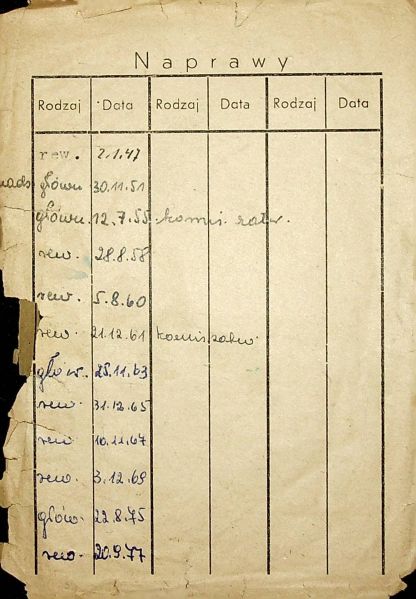 Naprawy
Rodzaj Data Rodzaj Data Rodzaj Data
rew. 2.1.47
nads. główn 30.11.51
główn. 12.7.55. komis. zatw.
rew. 28.8.58
rew. 5.8.60
rew. 21.12.61 komis. zatw.
głów. 25.11.63
rew. 31.12.65
rew 10.11.67
rew. 3.12.69
głów. 22.8.75
rew. 20.9.77